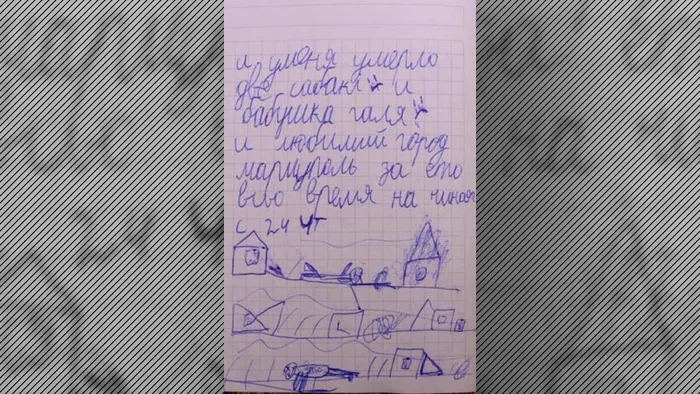 и уменя умерло
две сабаки и
бабушка галя
и любимий город
мариуполь за ето
всво время на чиная
с 24 чт